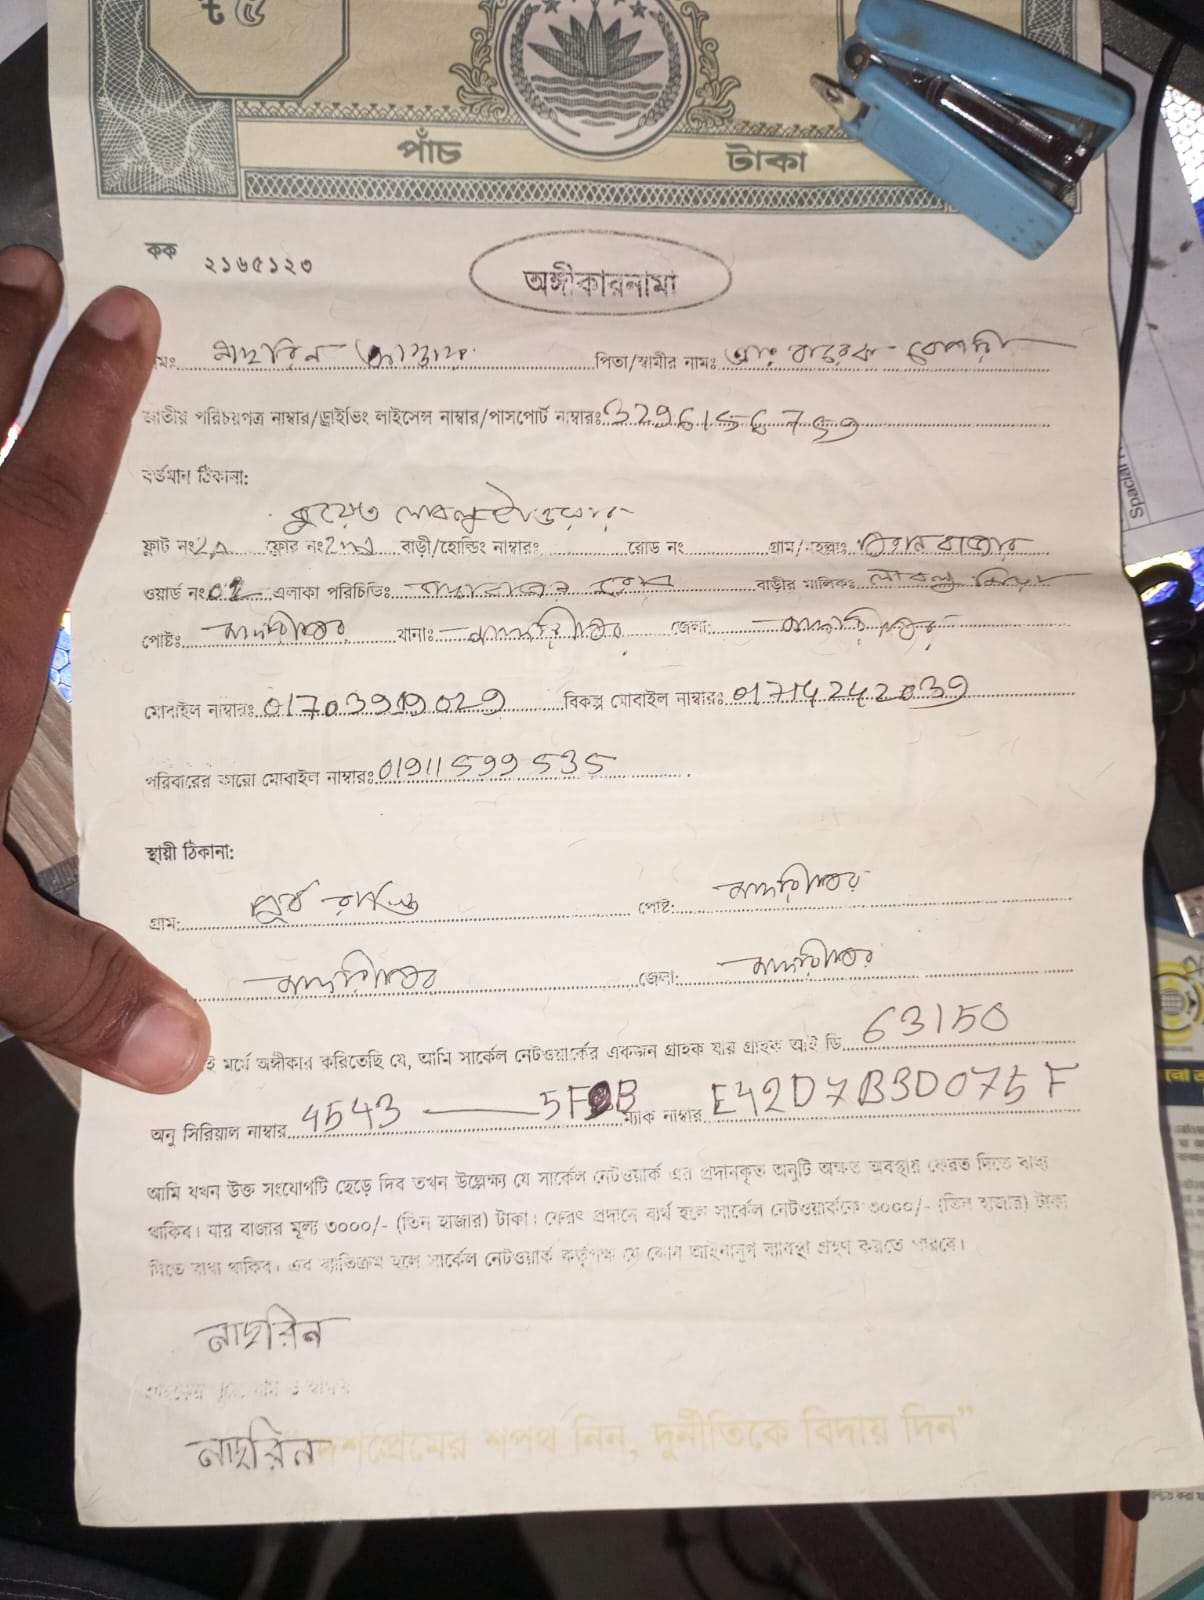 ৳ ৫
পাঁচ টাকা
কক ২১৬৫১২৩
অঙ্গীকারনামা
মঃ নাছরিন আক্তার পিতা/স্বামীর নামঃ
জাতীয় পরিচয়পত্র নাম্বার/ড্রাইভিং লাইসেন্স নাম্বার/পাসপোর্ট নাম্বারঃ 3296156759
বর্তমান ঠিকানা:
কুয়েত লাবলু টাওয়ার
ফ্লাট নং 2A ফ্লোর নং 2nd বাড়ী/হোল্ডিং নাম্বারঃ রোড নং গ্রাম/মহল্লাঃ
ওয়ার্ড নং 02 এলাকা পরিচিতিঃ বাড়ীর মালিকঃ লাবলু
পোষ্টঃ মাদারীপুর থানাঃ মাদারীপুর জেলা: মাদারীপুর
মোবাইল নাম্বারঃ 01703919029 বিকল্প মোবাইল নাম্বারঃ 01714242039
পরিবারের কারো মোবাইল নাম্বারঃ 01911599535
স্থায়ী ঠিকানা:
গ্রাম: পূর্ব রাস্তি পোষ্ট: মাদারীপুর
মাদারীপুর জেলা: মাদারীপুর
ই মর্মে অঙ্গীকার করিতেছি যে, আমি সার্কেল নেটওয়ার্কের একজন গ্রাহক যার গ্রাহক আই ডি 63150
অনু সিরিয়াল নাম্বার 4543 — 5F B ম্যাক নাম্বার E42D7B3D075F
আমি যখন উক্ত সংযোগটি ছেড়ে দিব তখন উল্লেক্ষ্য যে সার্কেল নেটওয়ার্ক এর প্রদানকৃত অনুটি অক্ষত অবস্থায় ফেরত দিতে বাধ্য
থাকিব। যার বাজার মূল্য ৩০০০/- (তিন হাজার) টাকা। ফেরৎ প্রদানে ব্যর্থ হলে সার্কেল নেটওয়ার্ককে ৩০০০/- (তিন হাজার) টাকা
দিতে বাধ্য থাকিব। এর ব্যতিক্রম হলে সার্কেল নেটওয়ার্ক কর্তৃপক্ষ যে কোন আইনানুগ ব্যবস্থা গ্রহণ করতে পারবে।
নাছরিন
নাছরিন
দেশপ্রেমের শপথ নিন, দুর্নীতিকে বিদায় দিন”